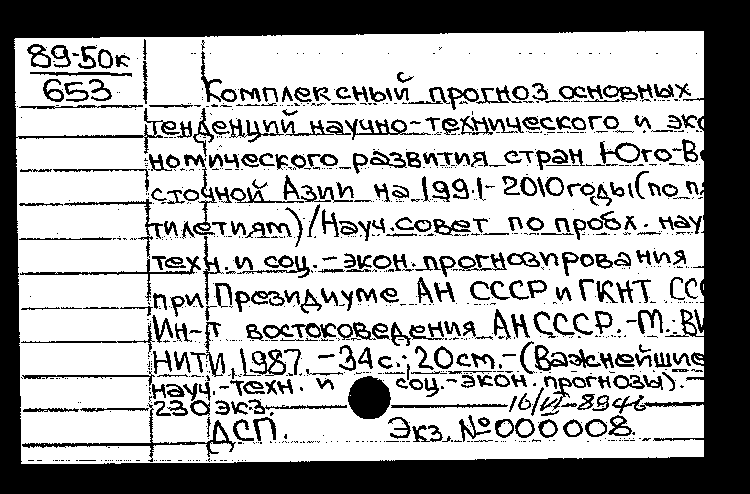 89-50к
653
Комплексный прогноз основных
тенденций научно-технического и эко
номического развития стран Юго-Во
сточной Азии на 1991-2010годы(по пя
тилетиям)/Науч.совет по пробл. науч
техн. и соц.-экон. прогнозирования
при Президиуме АН СССР и ГКНТ ССС
Ин-т востоковедения АН СССР.-М.: ВИ
НИТИ, 1987. - 34с.; 20см. - (Важнейшие
науч.-техн. и соц.-экон. прогнозы). -
230 экз.
ДСП. Экз. №000008.